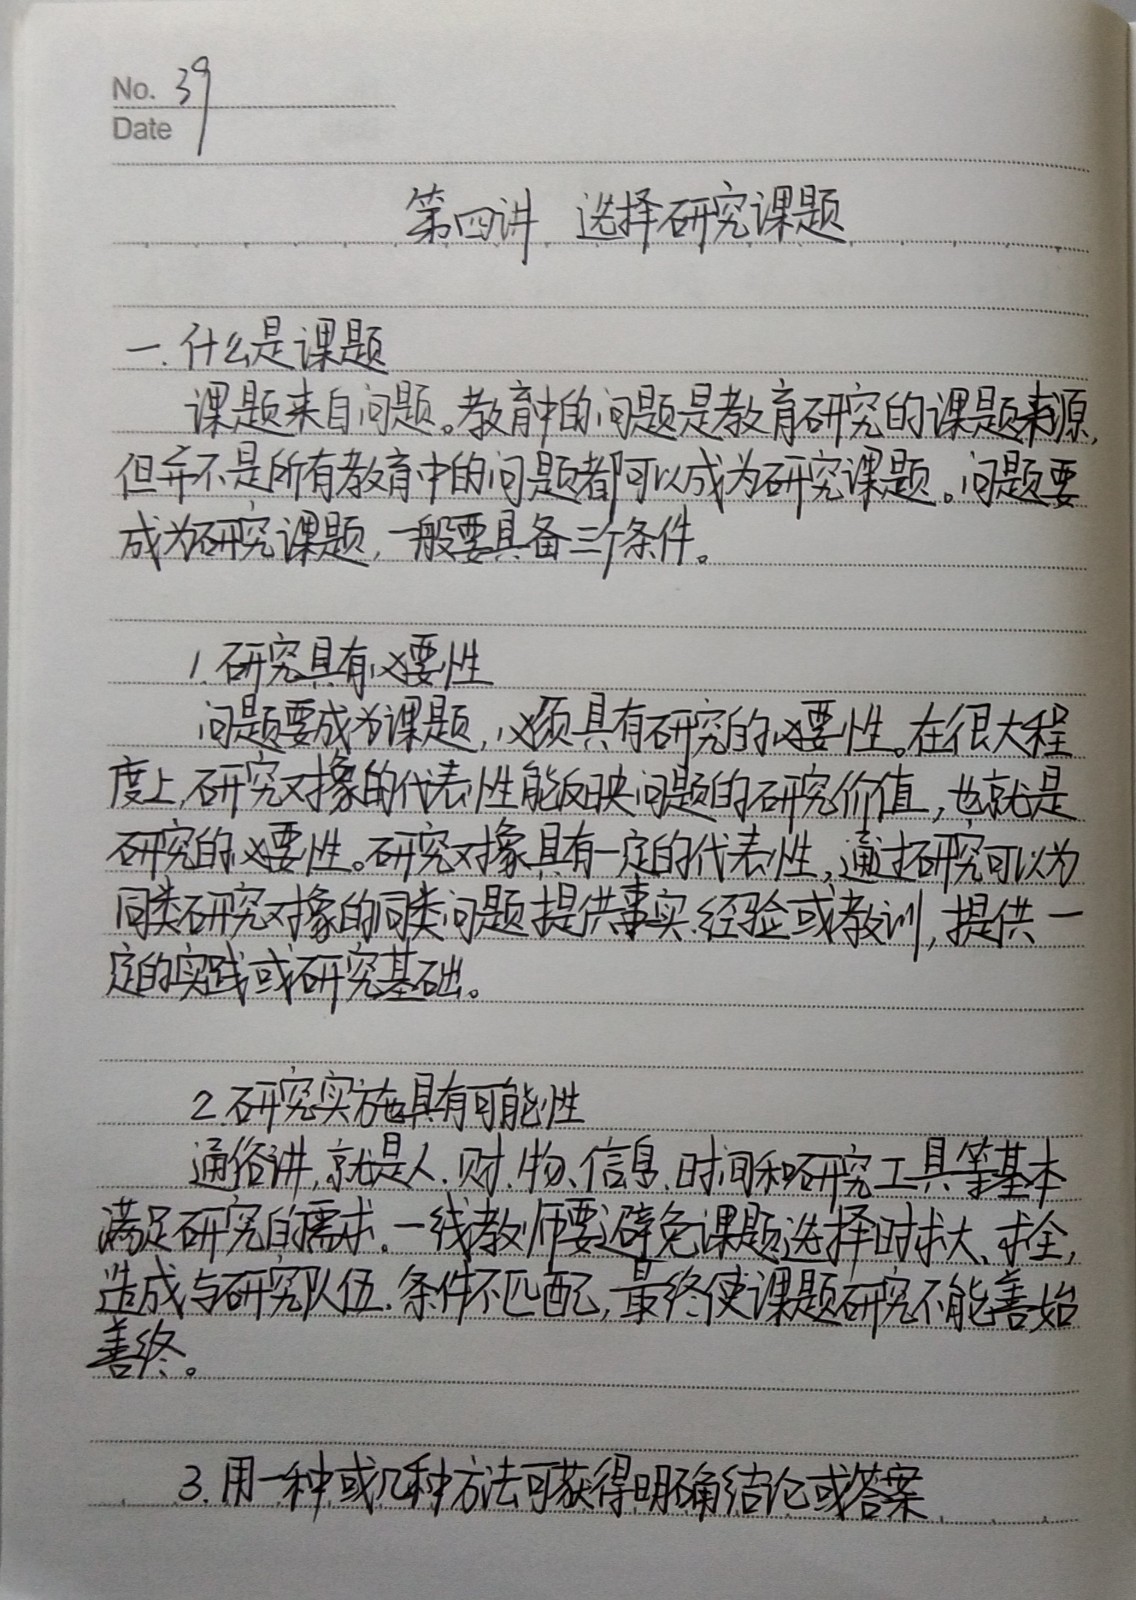 No. 39
Date
第四讲 选择研究课题
一.什么是课题
课题来自问题。教育中的问题是教育研究的课题来源,
但并不是所有教育中的问题都可以成为研究课题。问题要
成为研究课题,一般要具备三个条件。
1.研究具有必要性
问题要成为课题,必须具有研究的必要性。在很大程
度上,研究对象的代表性能反映问题的研究价值,也就是
研究的必要性。研究对象具有一定的代表性,通过研究可以为
同类研究对象的同类问题提供事实、经验或教训,提供一
定的实践或研究基础。
2.研究实施具有可能性
通俗讲,就是人、财、物、信息、时间和研究工具等基本
满足研究的需求。一线教师要避免课题选择时求大、求全,
造成与研究队伍、条件不匹配,最终使课题研究不能善始
善终。
3.用一种或几种方法可获得明确结论或答案